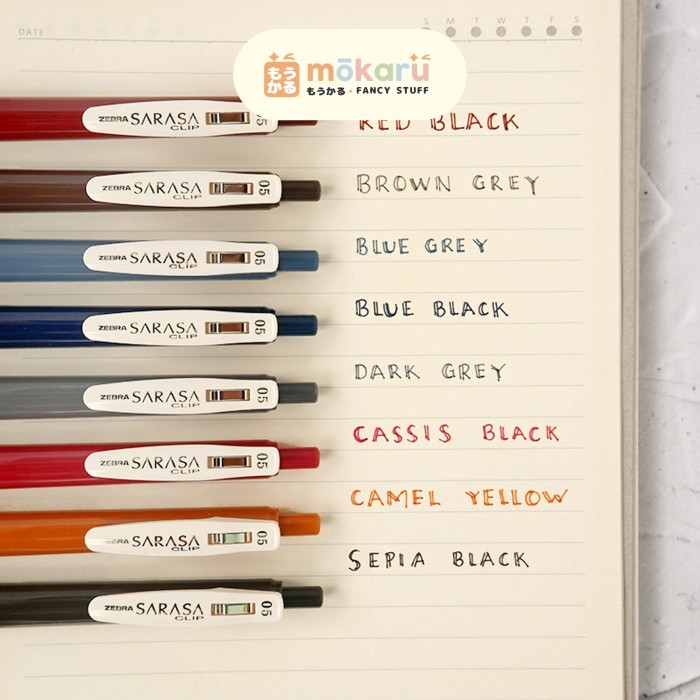 DATE
S M T W T F S
もうかる mōkaru
もうかる • FANCY STUFF
ZEBRA SARASA CLIP 05
RED BLACK
ZEBRA SARASA CLIP 05
BROWN GREY
ZEBRA SARASA CLIP 05
BLUE GREY
ZEBRA SARASA CLIP 05
BLUE BLACK
ZEBRA SARASA CLIP 05
DARK GREY
ZEBRA SARASA CLIP 05
CASSIS BLACK
ZEBRA SARASA CLIP 05
CAMEL YELLOW
ZEBRA SARASA CLIP 05
SEPIA BLACK